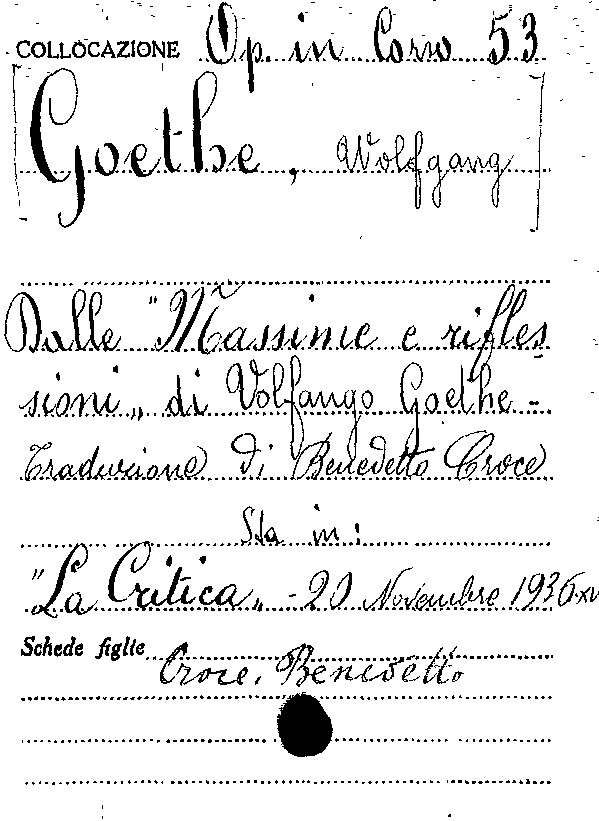 COLLOCAZIONE Op. in Corso 53
[Goethe, Wolfgang]
Dalle "Massime e rifles
sioni„ di Volfango Goethe -
Traduzione di Benedetto Croce
Sta in:
"La Critica„ - 20 Novembre 1936 xv
Schede figlie Croce, Benedetto